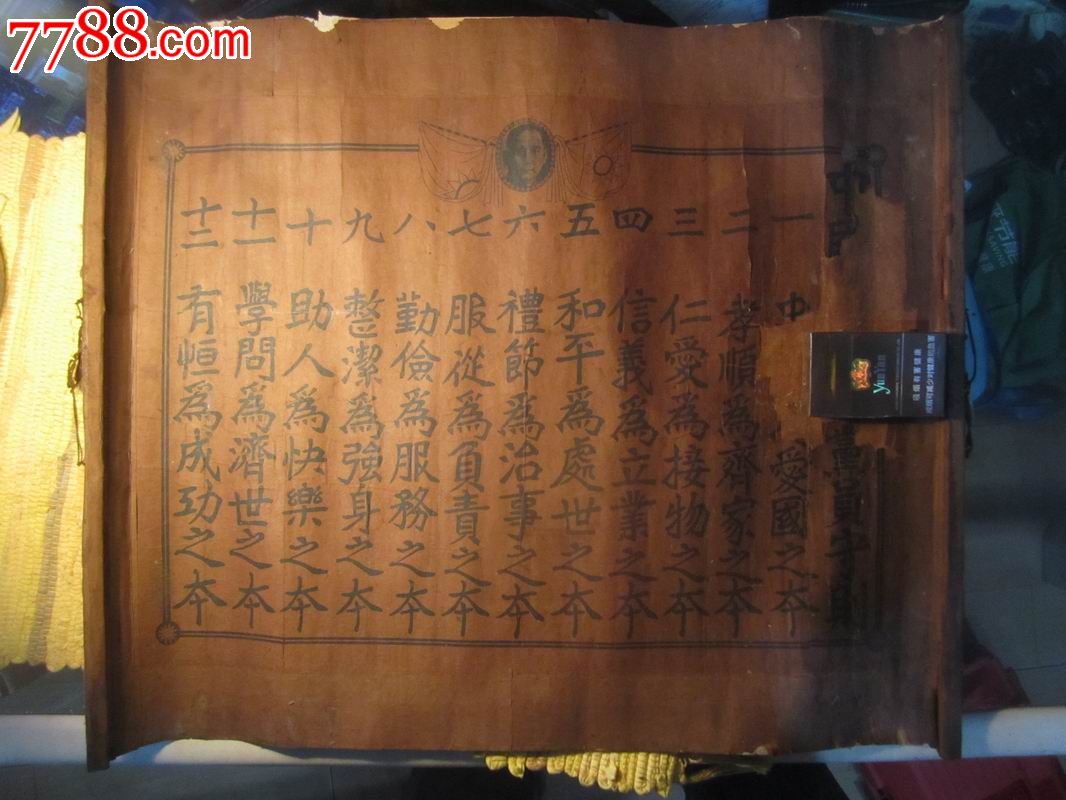 7788.com
中 黨員守則
一 愛國之本
二 孝順爲齊家之本
三 仁愛爲接物之本
四 信義爲立業之本
五 和平爲處世之本
六 禮節爲治事之本
七 服從爲負責之本
八 勤儉爲服務之本
九 整潔爲強身之本
十 助人爲快樂之本
十一 學問爲濟世之本
十二 有恒爲成功之本
吸烟有害健康
戒烟可减少对健康的危害
节能
SAVING